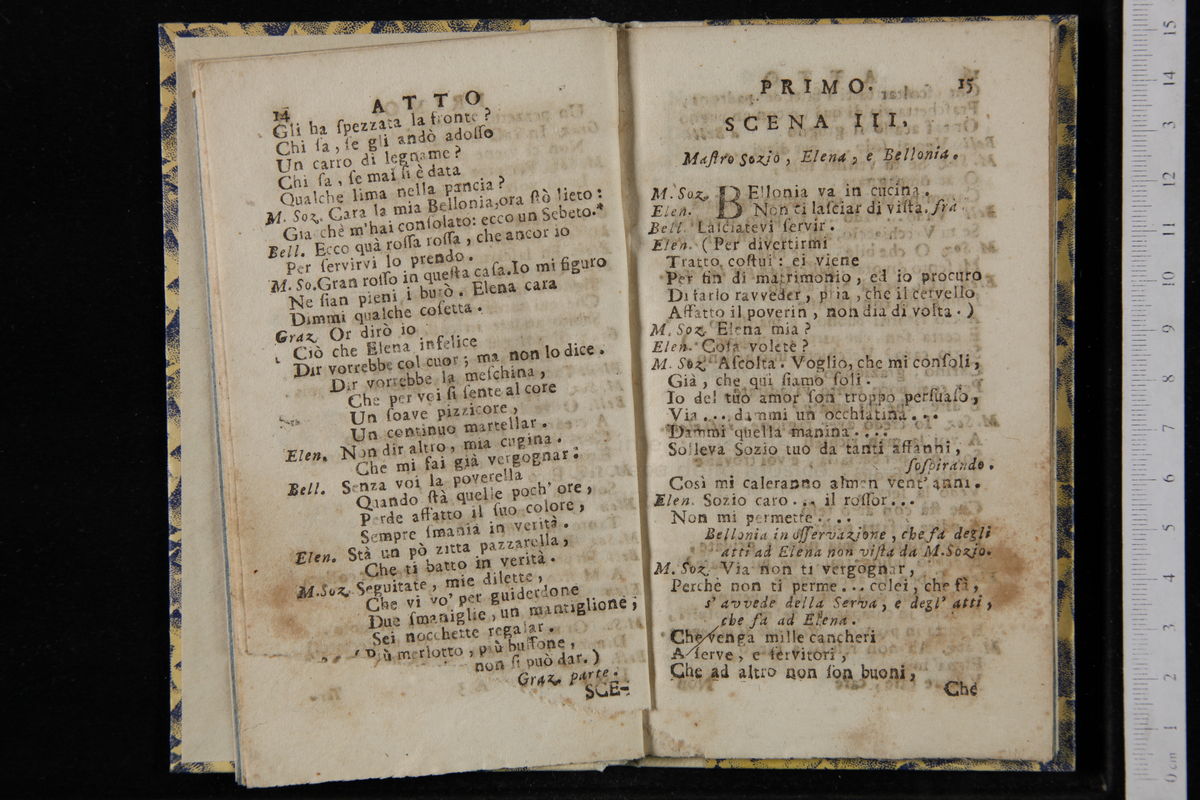 14 ATTO
Gli ha ſpezzata la fronte?
Chi ſa, ſe gli andò adoſſo
Un carro di legname?
Chi ſa, ſe mai ſi è data
Qualche lima nella pancia?
M. Soz. Cara la mia Bellonia, ora ſtò lieto:
Gia chè m'hai conſolato: ecco un Sebeto.
Bell. Ecco quà roſſa roſſa, che ancor io
Per ſervirvi lo prendo.
M. So. Gran roſſo in queſta caſa. Io mi figuro
Ne ſian pieni i burò. Elena cara
Dimmi qualche coſetta.
Graz. Or dirò io
Ciò che Elena infelice
Dir vorrebbe col cuor; ma non lo dice.
Dir vorrebbe la meſchina,
Che per voi ſi ſente al core
Un ſoave pizzicore,
Un continuo martellar.
Elen. Non dir altro, mia cugina.
Che mi fai già vergognar.
Bell. Senza voi la poverella
Quando ſtà quelle poch' ore,
Perde affatto il ſuo colore,
Sempre ſmania in verità.
Elen. Stà un pò zitta pazzarella,
Che ti batto in verità.
M. Soz. Seguitate, mie dilette,
Che vi vo' per guiderdone
Due ſmaniglie, un mantiglione;
Sei nocchette regalar.
(Più merlotto, più buffone,
non ſi può dar.)
Graz. parte.
SCE-
PRIMO. 15
SCENA III.
Maſtro Sozio, Elena, e Bellonia.
M. Soz. BEllonia va in cucina.
Elen. Non ti laſciar di viſta. frà
Bell. Laſciatevi ſervir.
Elen. (Per divertirmi
Tratto coſtui: ei viene
Per fin di matrimonio, ed io procuro
Di farlo ravveder, pria, che il cervello
Affatto il poverin, non dia di volta.)
M. Soz. Elena mia?
Elen. Coſa volete?
M. Soz. Aſcolta. Voglio, che mi conſoli,
Già, che qui ſiamo ſoli.
Io del tuo amor ſon troppo perſuaſo,
Via... dammi un occhiatina...
Dammi quella manina....
Solleva Sozio tuo da tanti affanni,
ſoſpirando.
Così mi caleranno almen vent' anni.
Elen. Sozio caro... il roſſor...
Non mi permette....
Bellonia in oſſervazione, che fa degli
atti ad Elena non viſta da M. Sozio.
M. Soz. Via non ti vergognar,
Perchè non ti perme... colei, che fà,
s' avvede della Serva, e degl' atti,
che fa ad Elena.
Che venga mille cancheri
A ſerve, e ſervitori,
Che ad altro non ſon buoni,
Che